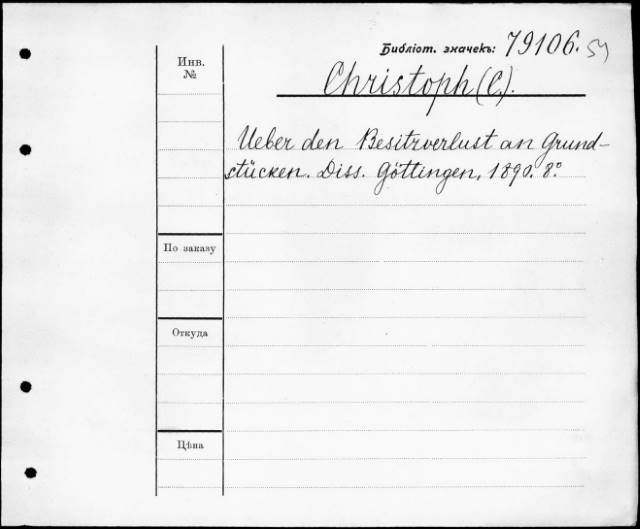 Библіот. значекъ: 79106. 54
Инв.
№
Christoph (C.).
Ueber den Besitzverlust an Grund-
stücken. Diss. Göttingen, 1890. 8°.
По заказу
Откуда
Цѣна